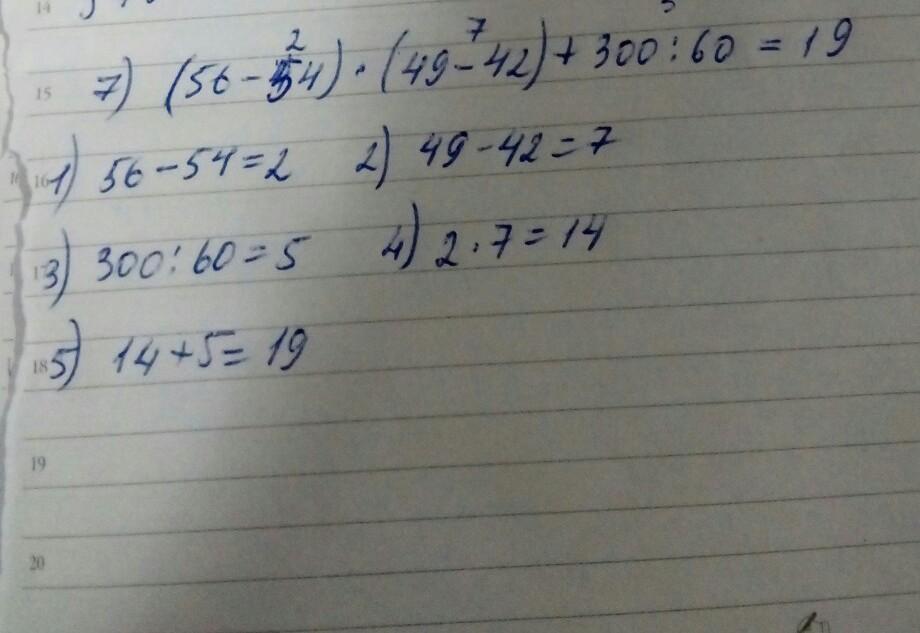 14
15 7) (56 - 54) · (49 - 42) + 300 : 60 = 19
2 7
16 1) 56 - 54 = 2 2) 49 - 42 = 7
3) 300 : 60 = 5 4) 2 · 7 = 14
18 5) 14 + 5 = 19
19
20